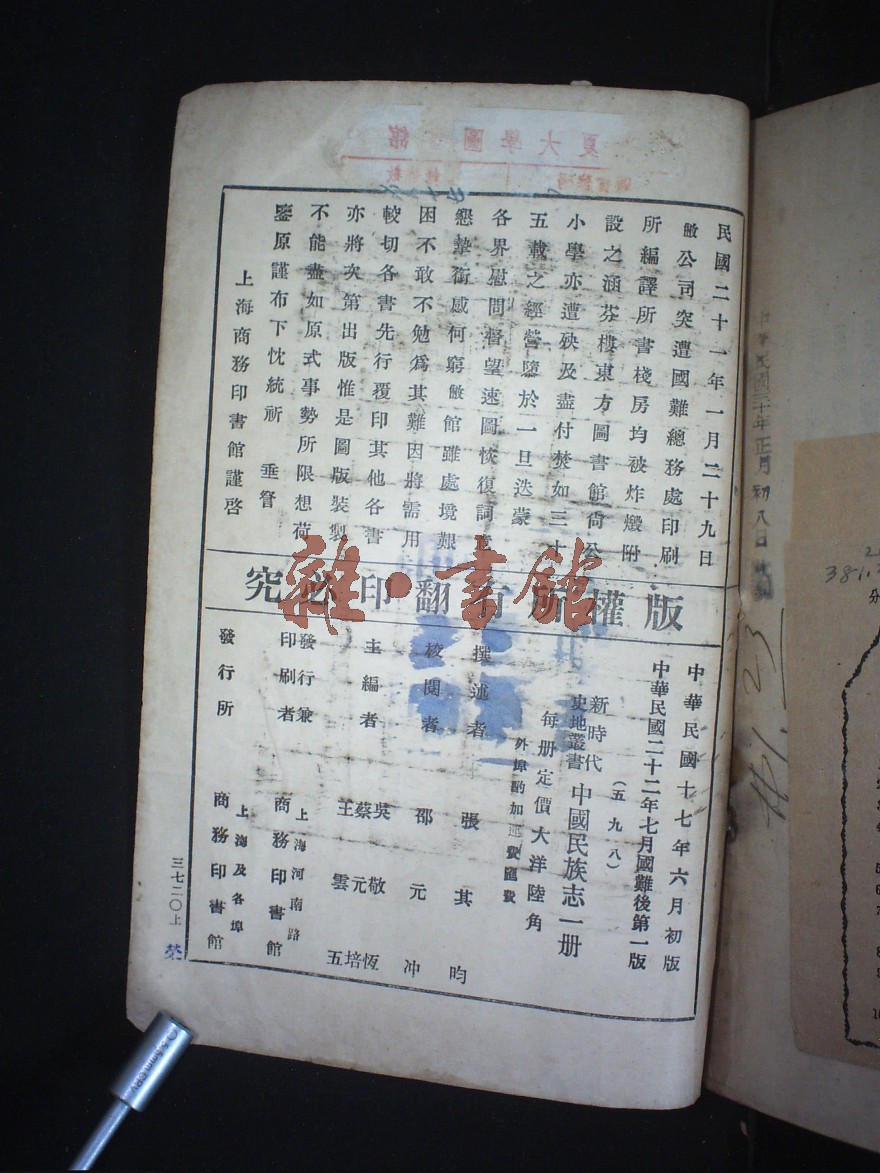 民國二十一年一月二十九日
敝公司突遭國難總務處印刷
所編譯所書棧房均被炸燬附
設之涵芬樓東方圖書館尚公
小學亦遭殃及盡付焚如三十
五載之經營隳於一旦迭蒙
各界慰問督望速圖恢復詞意
懇摯銜感何窮敝館雖處境艱
困不敢不勉爲其難因將需用
較切各書先行覆印其他各書
亦將次第出版惟是圖版裝製
不能盡如原式事勢所限想荷
鑒原謹布下忱統祈 垂詧
上海商務印書館謹啓
版權所有翻印必究
中華民國十七年六月初版
中華民國二十二年七月國難後第一版
(五九八)
新時代史地叢書 中國民族志一册
每册定價大洋陸角
外埠酌加運費匯費
撰述者 張其昀
校閱者 邵元冲
主編者 吳敬恆 蔡元培 王雲五
發行兼印刷者 上海河南路 商務印書館
發行所 上海及各埠 商務印書館
三七二〇上
夏大學圖 館
雜·書館
中華民國三十年正月初八日
381.
分